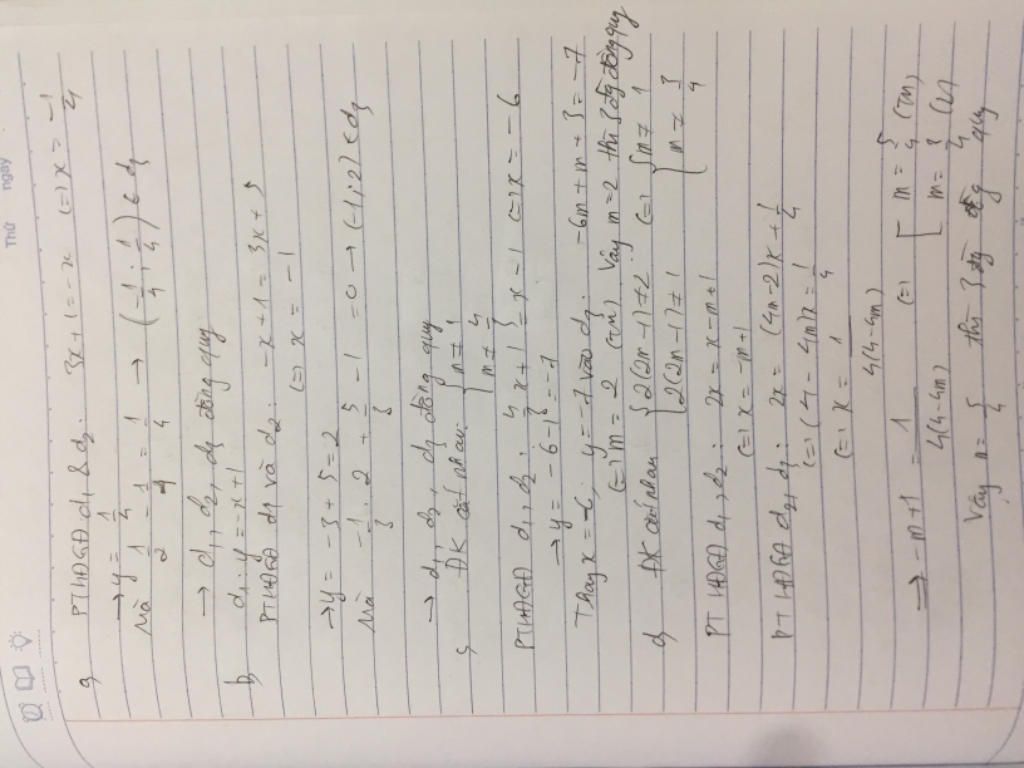 Thứ ngày
a, PTHĐGĐ d₁ & d₂: 3x + 1 = -x (=) x = -1/4
→ y = 1/4
Mà 1/2 - 1/4 = 1/4 → (-1/4; 1/4) ∈ d₃
→ d₁, d₂, d₃ đồng quy
b, d₁: y = -x + 1
PTHĐGĐ d₁ và d₂: -x + 1 = 3x + 5
(=) x = -1
→ y = -3 + 5 = 2
Mà -1/3 . 2 + 5/3 - 1 = 0 → (-1; 2) ∈ d₃
→ d₁, d₂, d₃ đồng quy
c, ĐK cắt nhau: { m ≠ 1
m ≠ 4/3
PTHĐGĐ d₁, d₂: 4/3 x + 1 = x - 1 (=) x = -6
→ y = -6 - 1 = -7
Thay x = -6; y = -7 vào d₃: -6m + m + 3 = -7
(=) m = -2 (tm) Vậy m = 2 thì 3 đg đồng quy
d, ĐK cắt nhau { 2(2m - 1) ≠ 2 (=) { m ≠ 1
2(2m - 1) ≠ 1 m ≠ 3/4
PT HĐGĐ d₁, d₂: 2x = x - m + 1
(=) x = -m + 1
PT HĐGĐ d₂, d₃: 2x = (4m - 2)x + 1/4
(=) (4 - 4m)x = 1/4
(=) x = 1/4(4 - 4m)
=> -m + 1 = 1/4(4 - 4m) (=) [ m = 5/4 (TM)
m = 3/4 (L)
Vậy m = 5/4 thì 3 đg đồng quy